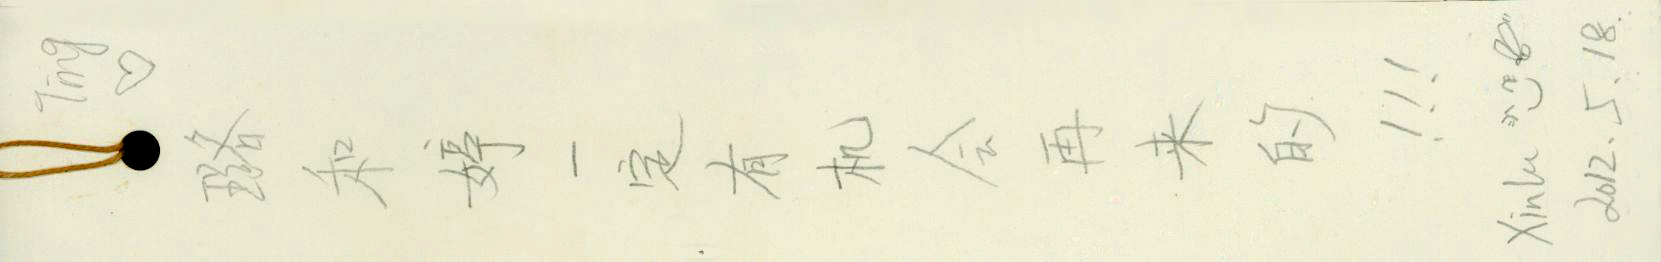 Ting ♡
璐和婷一定有机会再来的!!!
Xinlu
2012.5.18